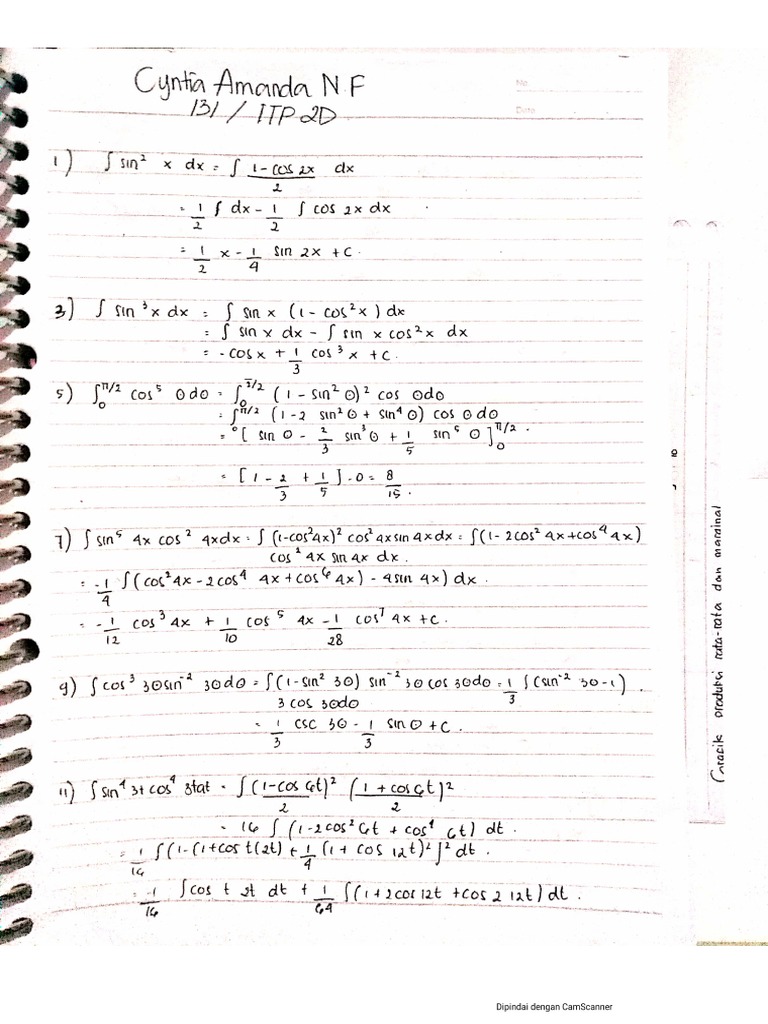 Cyntia Amanda N F
131 / ITP 2D
No
Date
1) ∫ sin² x dx = ∫ (1 - cos 2x)/2 dx
= 1/2 ∫ dx - 1/2 ∫ cos 2x dx
= 1/2 x - 1/4 sin 2x + C.
3) ∫ sin³ x dx = ∫ sin x (1 - cos² x) dx
= ∫ sin x dx - ∫ sin x cos² x dx
= -cos x + 1/3 cos³ x + C.
5) ∫₀^π/2 cos⁵ θ dθ = ∫₀^π/2 (1 - sin² θ)² cos θ dθ
= ∫₀^π/2 (1 - 2 sin² θ + sin⁴ θ) cos θ dθ
= [ sin θ - 2/3 sin³ θ + 1/5 sin⁵ θ ]₀^π/2.
= [1 - 2/3 + 1/5] - 0 = 8/15.
7) ∫ sin⁵ 4x cos² 4x dx = ∫ (1-cos² 4x)² cos² 4x sin 4x dx = ∫ (1 - 2cos² 4x + cos⁴ 4x)
cos² 4x sin 4x dx.
= -1/4 ∫ (cos² 4x - 2cos⁴ 4x + cos⁶ 4x) - 4 sin 4x) dx.
= -1/12 cos³ 4x + 1/10 cos⁵ 4x - 1/28 cos⁷ 4x + C.
9) ∫ cos³ 3θ sin⁻² 3θ dθ = ∫ (1 - sin² 3θ) sin⁻² 3θ cos 3θ dθ = 1/3 ∫ (sin⁻² 3θ - 1).
3 cos 3θ dθ
= 1/3 csc 3θ - 1/3 sin θ + C.
11) ∫ sin⁴ 3t cos⁴ 3t dt = ∫ ((1 - cos 6t)/2)² ((1 + cos 6t)/2)²
= 16 ∫ (1 - 2cos² 6t + cos⁴ 6t) dt.
= 1/16 ∫ (1 - (1 + cos t (2t) + 1/4 (1 + cos 12t)² ]² dt.
= -1/16 ∫ cos t 2t dt + 1/64 ∫ (1 + 2 cos 12t + cos 2 12t) dt.
Grafik produksi rata-rata dan marginal
Dipindai dengan CamScanner